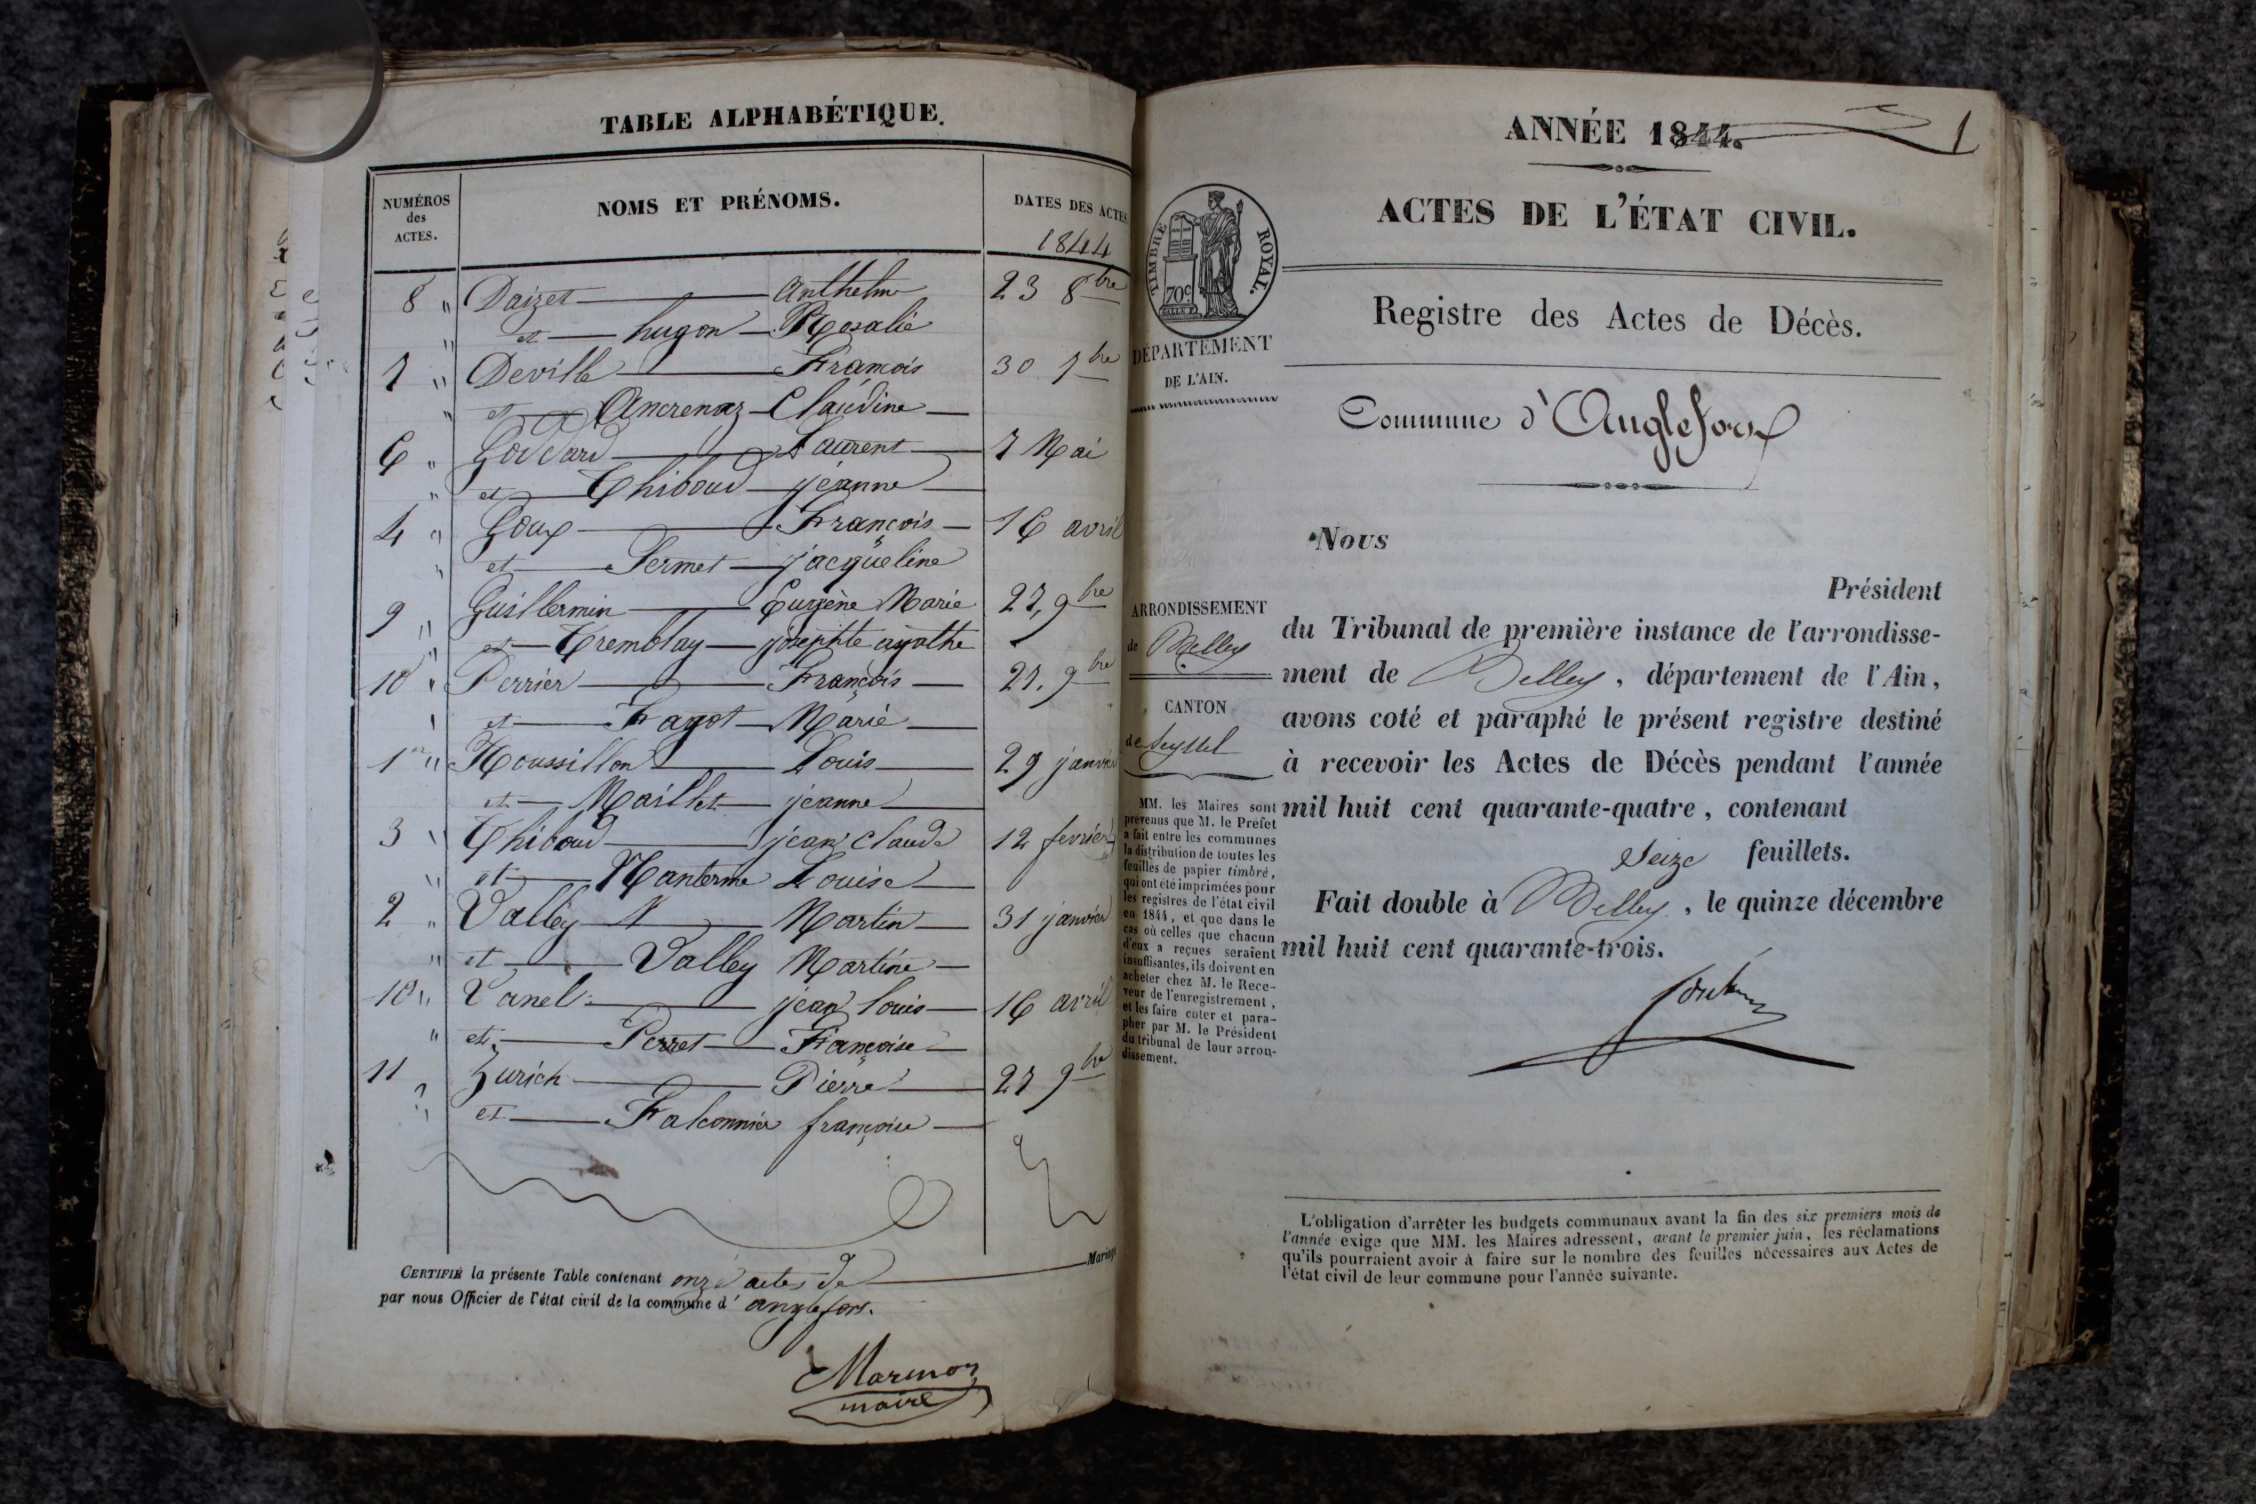 TABLE ALPHABÉTIQUE.
NUMÉROS des ACTES.
NOMS ET PRÉNOMS.
DATES DES ACTES
1844
8 " Daizet Anthelme 23 8bre
" et hugon Rosalie
7 " Deville François 30 7bre
" et Ancrenaz Claudine
6 " Goddard Laurent 7 Mai
" et Thiboud jeanne
4 " Goux François 16 avril
" et Fermet jacqueline
9 " Guillermin Eugène Marie 27, 9bre
" et Tremblay josephte agathe
10 " Perrier François 27. 9bre
" et Fagot Marie
1er " Roussillon Louis 29 janvier
et Maillet jeanne
3 " Thiboud jean claude 12 fevrier
" et Nanterme Louise
2 " Valley Martin 31 janvier
" et Valley Martine
10 " Vanel jean louis 16 avril
" et Perret Françoise
11 Zurich Pierre 27 9bre
" et Falconnier françoise
CERTIFIÉ la présente Table contenant onze actes de Mariage
par nous Officier de l'état civil de la commune d' anglefort.
Marmon
maire
ANNÉE 1844.
1
ACTES DE L'ÉTAT CIVIL.
TIMBRE ROYAL.
70c
DÉPARTEMENT
DE L'AIN.
Registre des Actes de Décès.
Commune d'Anglefort
ARRONDISSEMENT
de Belley
CANTON
de Seyssel
MM. les Maires sont
prévenus que M. le Préfet
a fait entre les communes
la distribution de toutes les
feuilles de papier timbré,
qui ont été imprimées pour
les registres de l'état civil
en 1844, et que dans le
cas où celles que chacun
d'eux a reçues seraient
insuffisantes, ils doivent en
acheter chez M. le Rece-
veur de l'enregistrement,
et les faire coter et para-
pher par M. le Président
du tribunal de leur arron-
dissement.
Nous
Président
du Tribunal de première instance de l'arrondisse-
ment de Belley, département de l'Ain,
avons coté et paraphé le présent registre destiné
à recevoir les Actes de Décès pendant l'année
mil huit cent quarante-quatre, contenant
Seize feuillets.
Fait double à Belley, le quinze décembre
mil huit cent quarante-trois.
L'obligation d'arrêter les budgets communaux avant la fin des six premiers mois de
l'année exige que MM. les Maires adressent, avant le premier juin, les réclamations
qu'ils pourraient avoir à faire sur le nombre des feuilles nécessaires aux Actes de
l'état civil de leur commune pour l'année suivante.